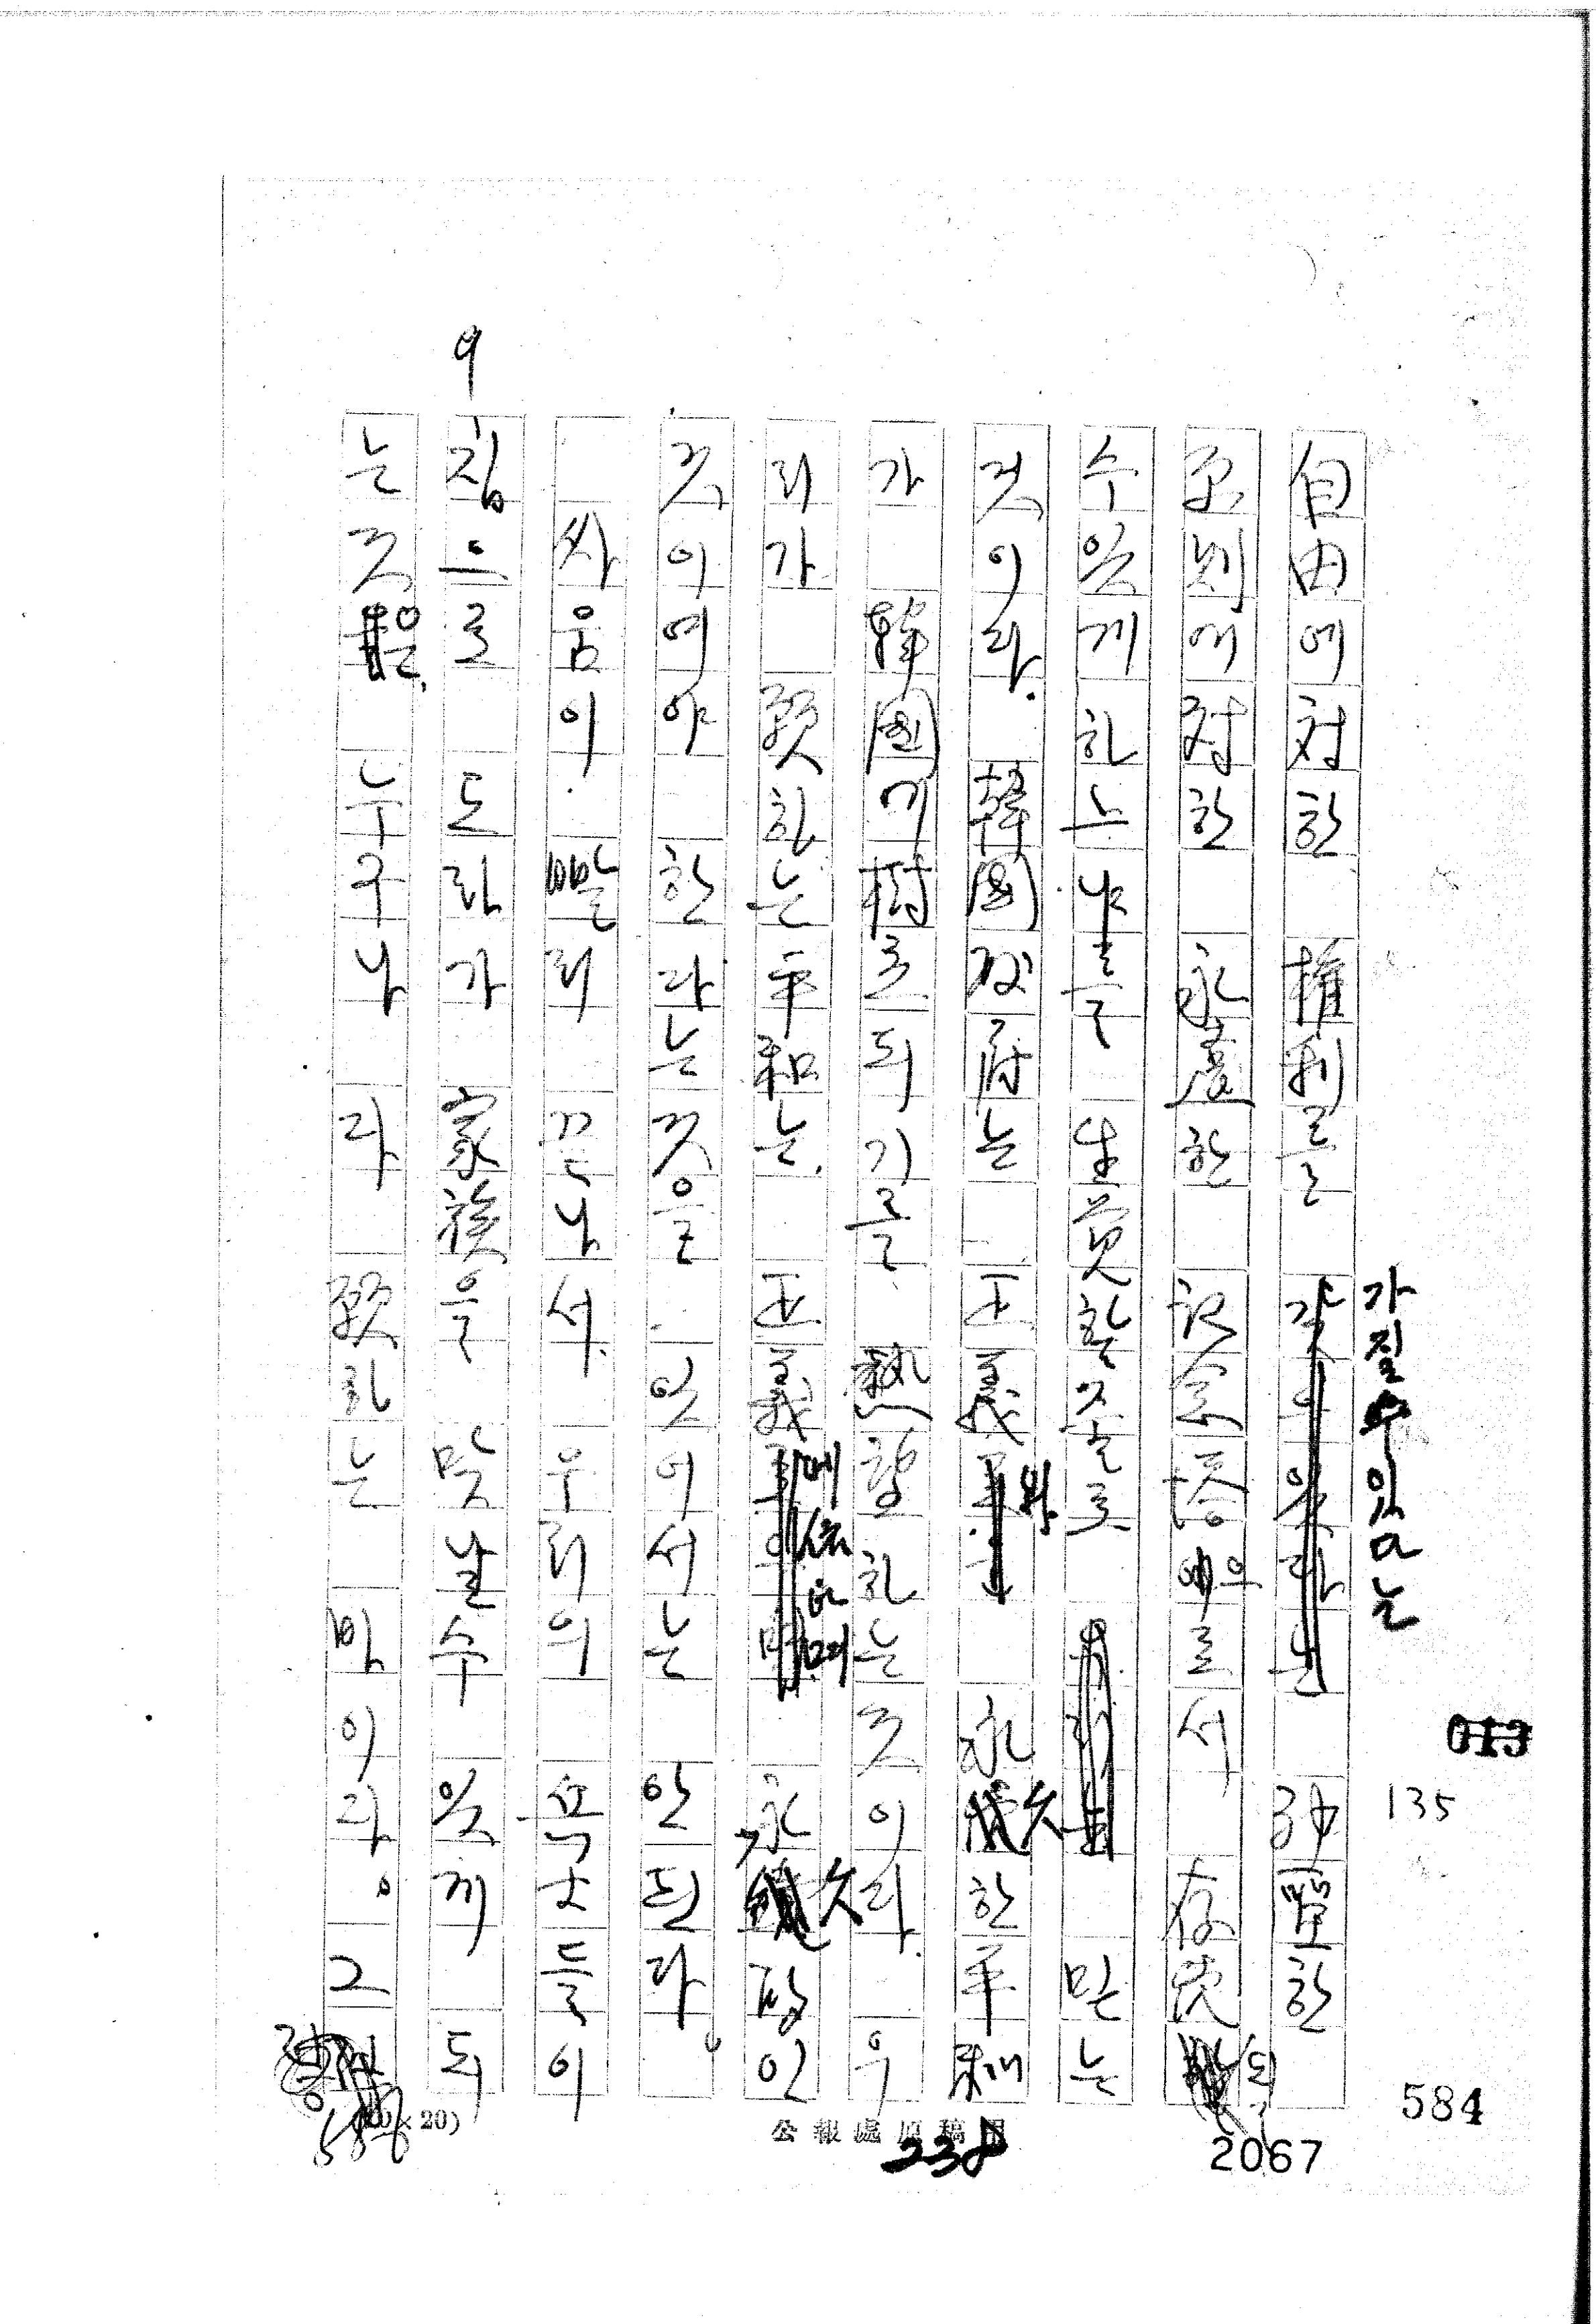 9
自由에 対한 權利를 가질수있다는 神聖한
原則에 対한 永遠한 記念塔으로서 存児되
수 있게 하느냐를 生覚할 것으로 믿는
것이다. 韓国政府는 正義와 永久한 平和
가 韓国에 樹立되기를 熱望하는 것이다. 우
리가 願하는 平和는 正義에 依하며 永久的인
것이여야 한다는 것을 잊어서는 안된다.
싸움이 빨리 끝나서 우리의 勇士들이
집으로 도라가 家族을 맛날수 있게 되
는 것은 누구나 다 願하는 바이다. 그
公報處原稿用
(10×20)
013
135
584
2067
238